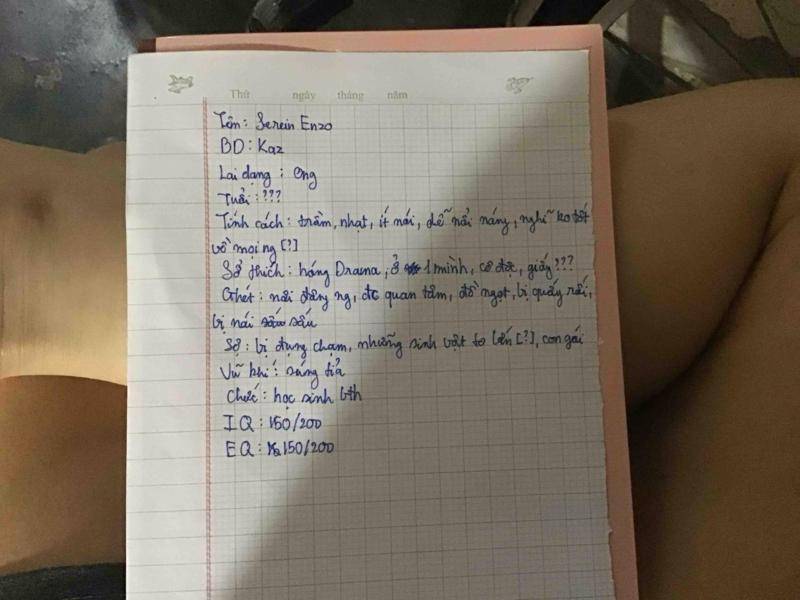 Thứ ngày tháng năm
Tên: Serein Enzo
BD: Kaz
Lai dạng : Ong
Tuổi : ???
Tính cách : trầm, nhạt, ít nói, dễ nổi nóng, nghĩ ko tốt
về mọi ng [?]
Sở thích : hóng Drama, ở 1 mình, cô độc, giấy ???
Ghét : nơi đông ng, đc quan tâm, đồ ngọt, bị quấy rối,
bị nói xấu
Sợ : bị đụng chạm, những sinh vật to lớn [?], con gái
Vũ khí : súng tỉa
Chức : học sinh bth
IQ : 150/200
EQ : 150/200